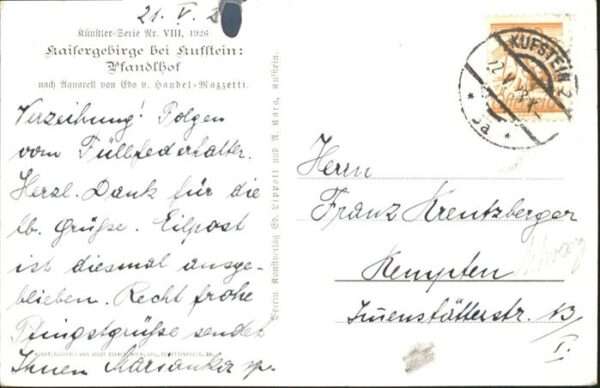 21. V. 2
Künstler-Serie Nr. VIII, 1926
Kaisergebirge bei Kufstein:
Pfandlhof
nach Aquarell von Edo v. Handel-Mazzetti.
Verzeihung! Folgen
vom Füllfederhalter.
Herzl. Dank für die
lb. Grüße. Eilpost
ist diesmal ausge-
blieben. Recht frohe
Pfingstgrüße sendet
Ihnen Marianka
Verein Kunstverlag Ed. Lippott und A. Karg, Kufstein.
KUFSTEIN 2
* 3a *
Herrn
Franz Krentzberger
Kempten
Immenstätterstr. 13/I.